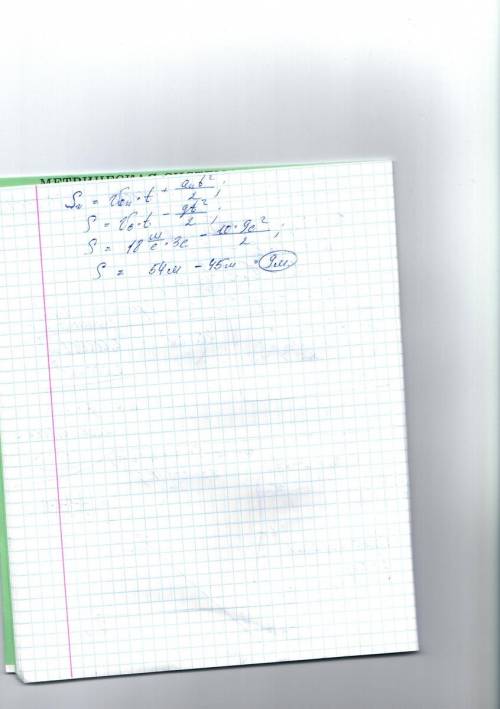 МЕТРИЧЕСКАЯ
Sₙ = V₀ₙ · t + aₙt²/2 ;
S = V₀ · t − gt²/2 ;
S = 18 м/с · 3с − 10 · 9с²/2 ;
S = 54м − 45м = 9м